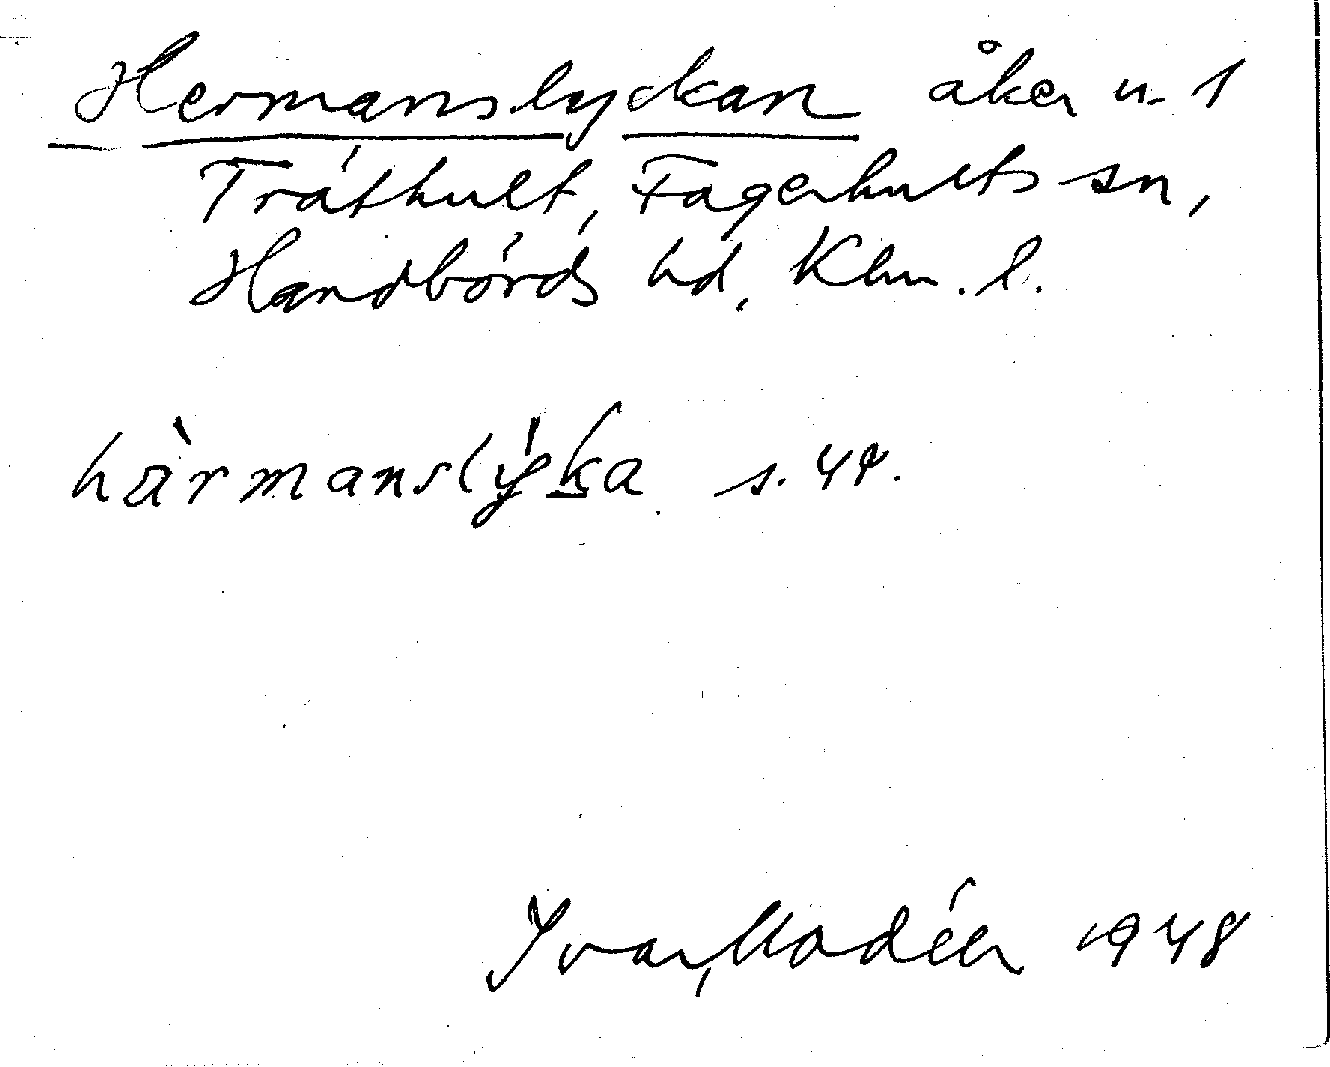 Hermanslyckan åker n. 1
Tråthult, Fagerhults sn,
Handbörds hd, Klm. l.
hàrmanslýka s. 44.
Ivar Modéer 1948